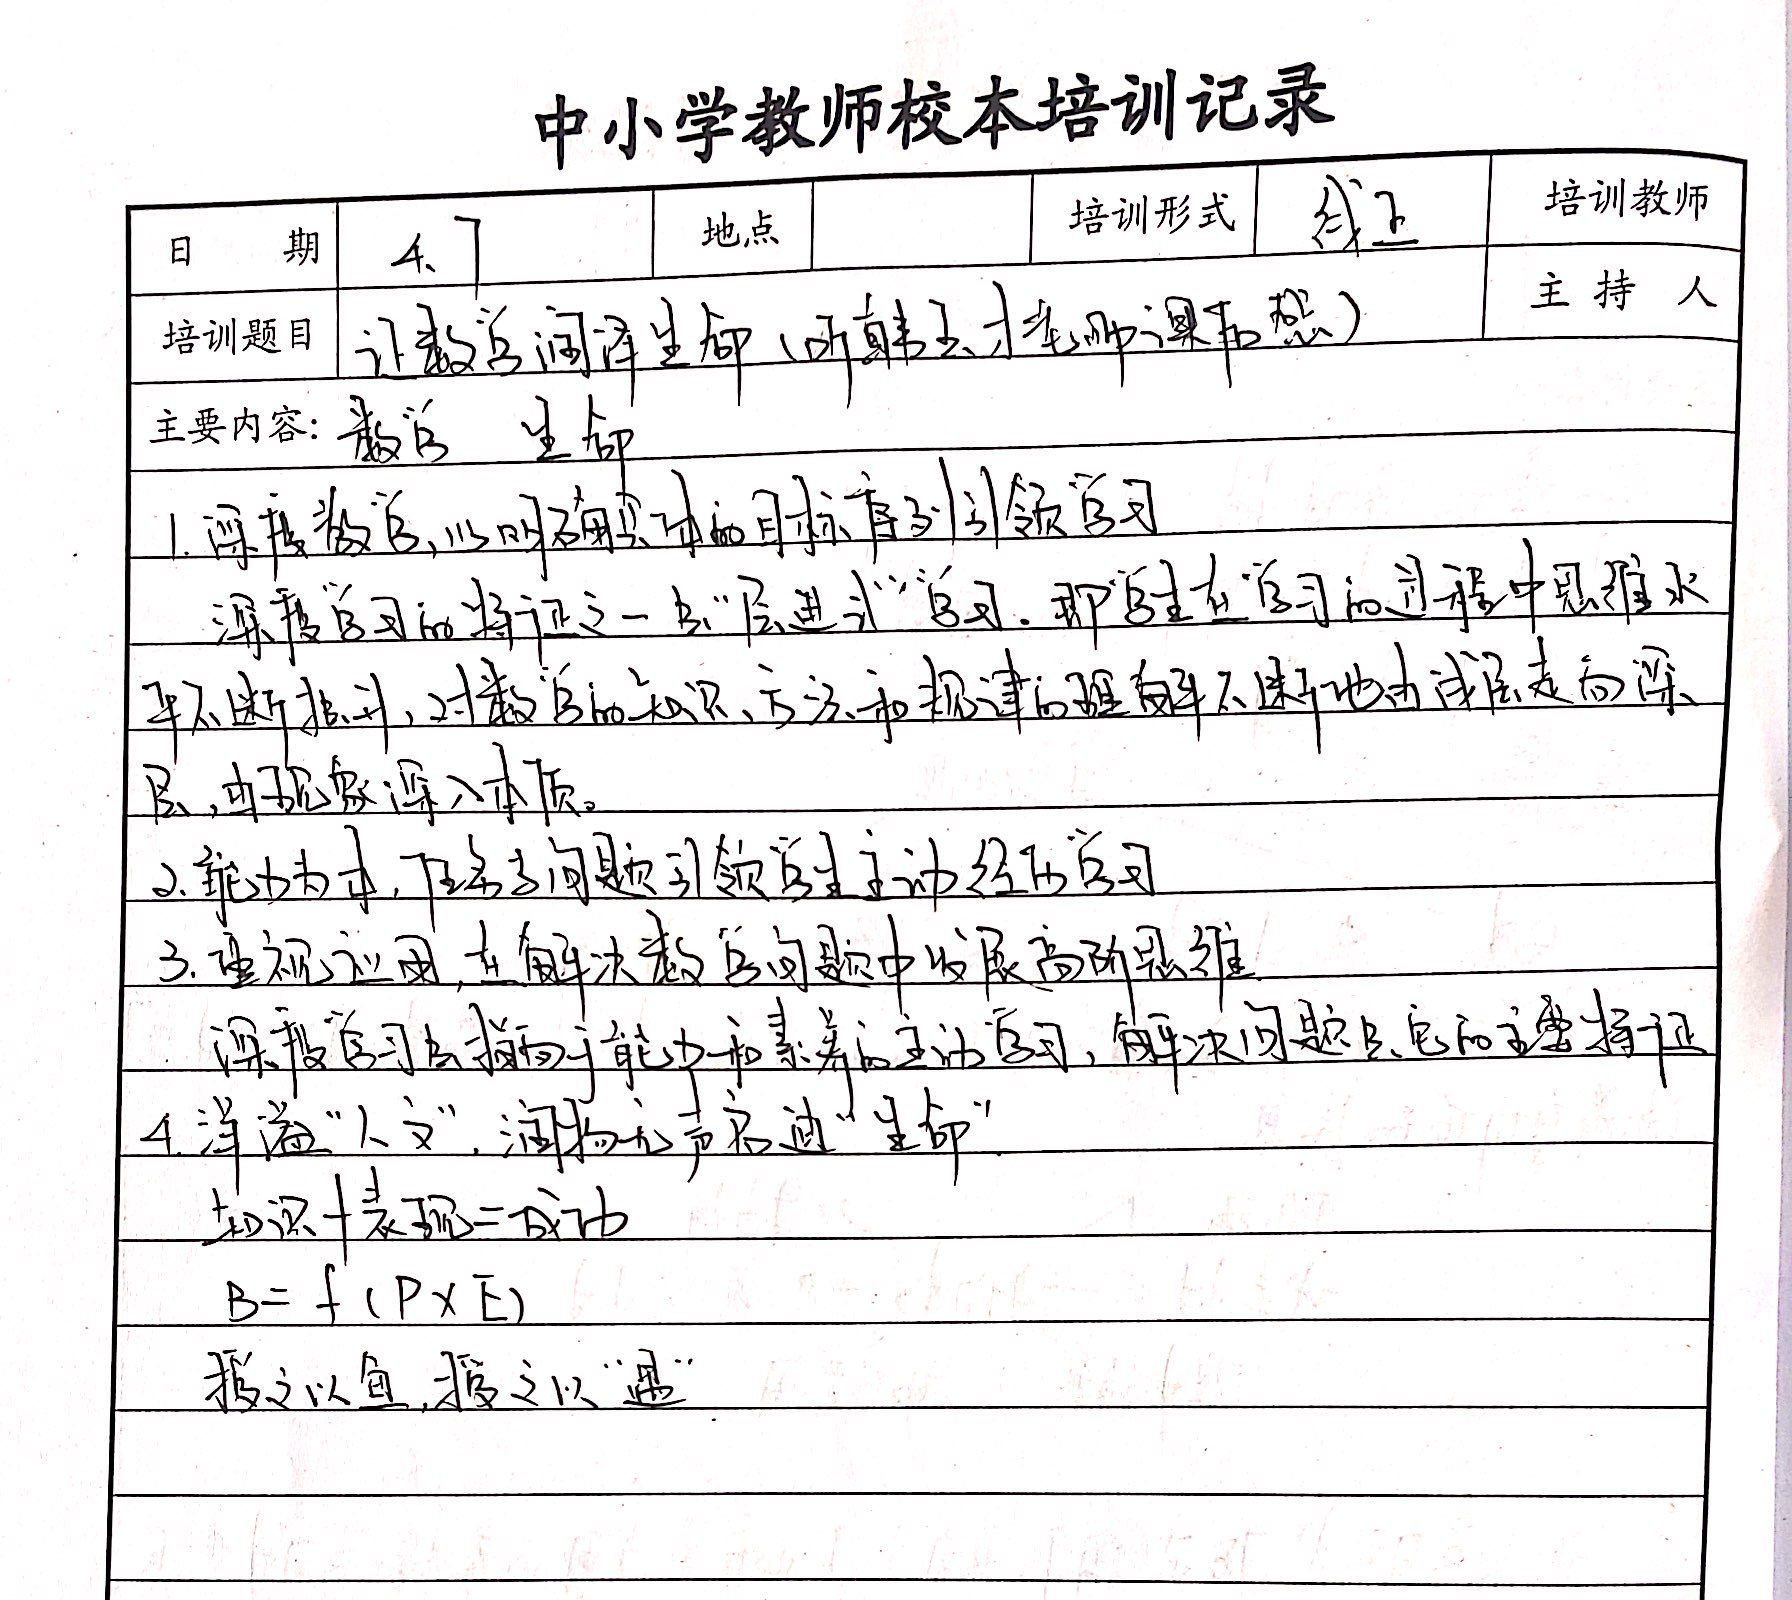 中小学教师校本培训记录
日 期 4.7 地点 培训形式 线上 培训教师
培训题目 让数学润泽生命(听韩玉才老师课有感) 主 持 人
主要内容: 数学 生命
1. 深度教学,以明确具体的目标序列引领学习
深度学习的特征之一是“层进式”学习.即学生在学习的过程中思维水
平不断提升,对数学的知识、方法和规律的理解不断地由浅层走向深
层,由现象深入本质。
2. 能力为本,任务与问题引领学生主动经历学习
3. 重视应用,在解决数学问题中发展高阶思维
深度学习是指向于能力和素养的主动学习,解决问题是它的主要特征
4. 洋溢“人文”,润物无声启迪“生命”.
知识+表现=成功
B=f(P×E)
授之以鱼,授之以“遇”